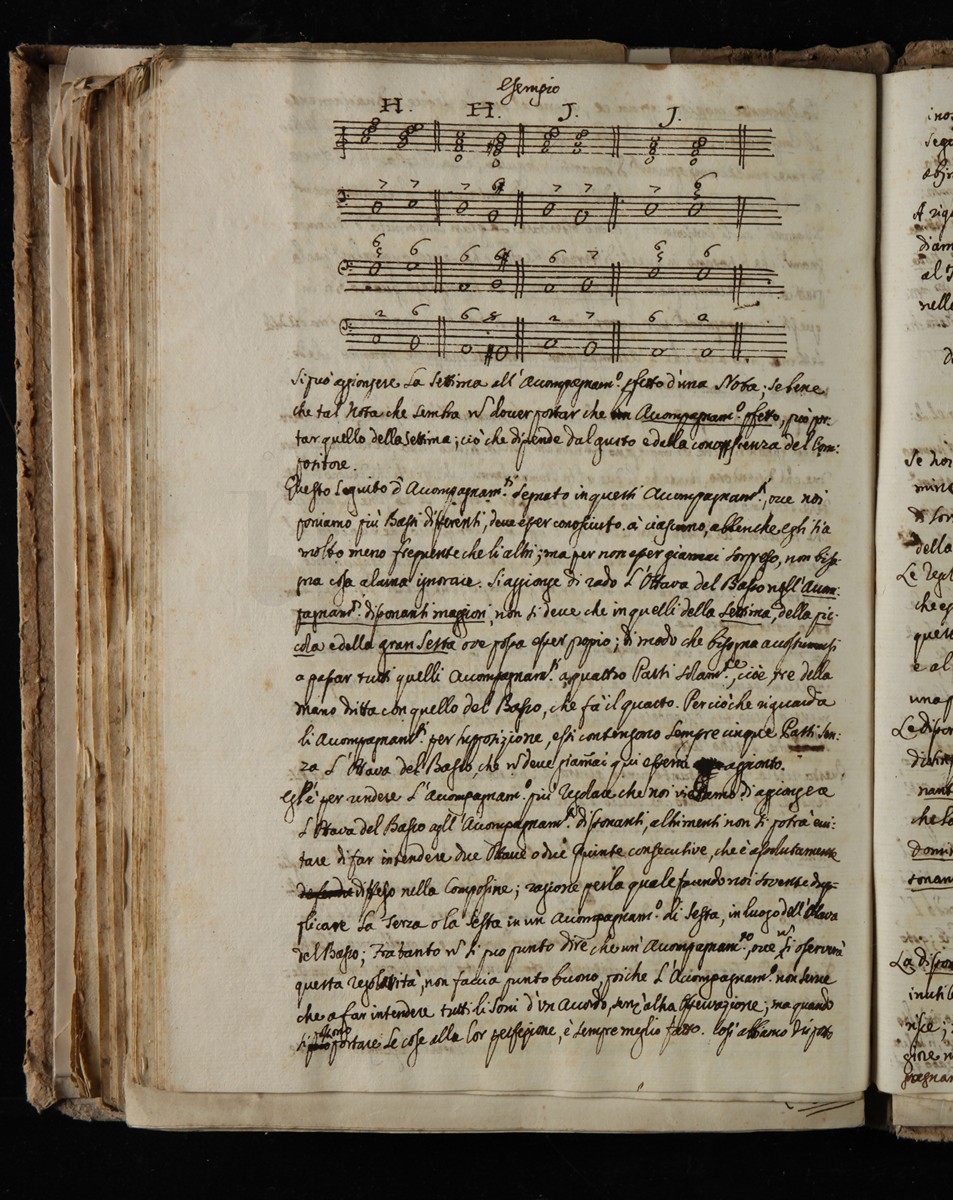 Esempio
H. H. J. J.
7 7 7 6 7 7 7 6
6 6 6 6 6 7 6 6
2 6 6 8 2 7 6 2
Si può aggionger la settima all' Accompagnam.º pfetto d'una Nota; se bene
che tal Nota che sembra ñ dover portar che Accompagnam.º pfetto, può por-
tar quello della settima; ciò che dipende dal gusto e della conoscienza del Com:
positore.
Questo seguito d' Accompagnam.ti segnato in questi Accompagnam.ti, ove noi
poniamo più Bassi differenti, deve esser conosciuto à ciascuno, abbenche egli sia
molto meno frequente che li altri; ma per non esser giamai sorpreso, non biso-
gna cosa alcuna ignorare. Si aggionge di rado l'Ottava del Basso negl' Accom:
pagnam.ti dissonanti maggiori, non si deve che in quelli della settima, della pic-
cola e della gran sesta ove possa esser propio; di modo che bisogna accostumarsi
a passar tutti quelli Accompagnam.ti a quattro Parti solam.te, cioè, tre della
mano dritta con quello del Basso, che fà il quarto. Per ciò che riguarda
li Accompagnam.ti per supposizione, essi contengono sempre cinque Parti sen:
za l'Ottava del Basso che ñ deve giamai qui esservi aggionto.
Egl'è per rendere l'Accompagnam.º più regolare che noi vietiamo d'aggiongere
l'Ottava del Basso agli Accompagnam.ti dissonanti, altrimenti non si potrà evi:
tare di far intendere due Ottave o due Quinte consecutive, che è assolutamente
difeso nella Composizione; ragione per la quale facendo noi sovente dup-
plicare la Terza o la Sesta in un Accompagnam.º di Sesta, in luogo dell'Ottava
del Basso; Frà tanto ñ si può punto dire che un' Accompagnam.to, ove ñ si osserverà
questa regolarità, non faccia punto buono, poiche l'Accompagnam.º non serve
che a far intendere tutti li soni d'un Accordo, senz'altra Osservazione; ma quando
si portare le cose alla lor perfezione, è sempre meglio fatto. Così abbiamo disposto